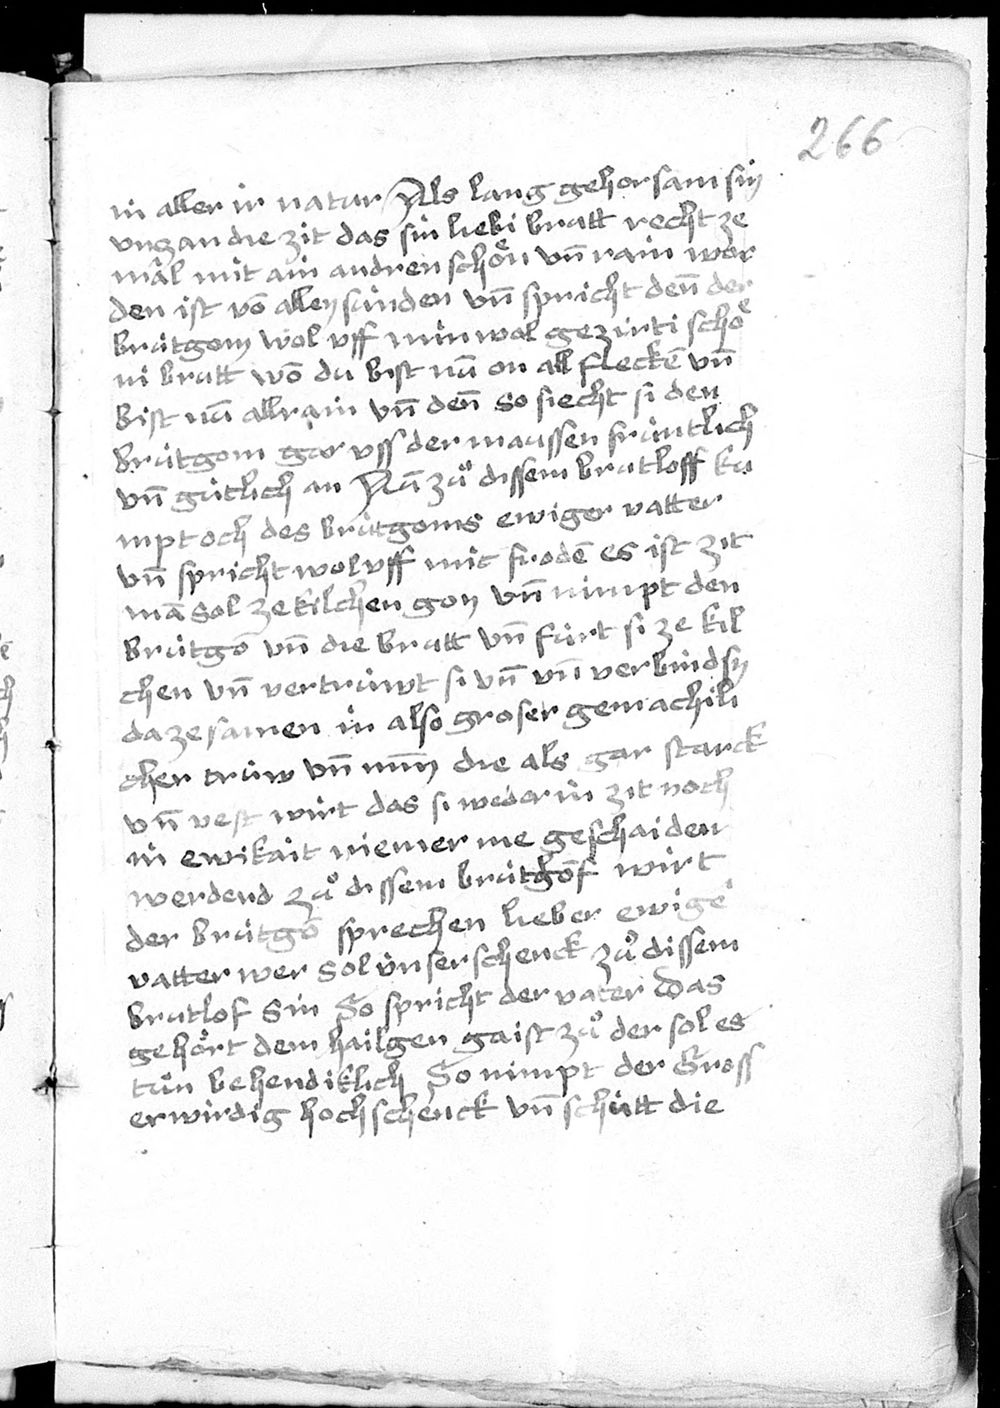 266
in aller ir natur Als lang gehorsam sin
vnczan die zit das sin liebi brutt recht ze
mâl mit ain andren schoͤn vn̄ rain wor
den ist vō allen súnden vn̄ spricht den̄ der
brútgom wol vff min wol gezirti schoͤ
ni brutt wō du bist nū on all fleckē vn̄
bist nū all rain vn̄ den̄ so siecht si den
brútgom gar vss der maussen frúntlich
vn̄ gútlich an Nū zuͦ dissem brutloff ku
mpt och des brútgoms ewiger vatter
vn̄ spricht wol vff mit frodē es ist zit
mā sol ze kilchen gon vn̄ nimpt den
brútgō vn̄ die brutt vn̄ fúrt si ze kil
chen vn̄ vertrúwt si vn̄ vn̄ verbind sy
da zesamen in also groser gemachili
cher trúw vn̄ min̄ die als gar starck
vn̄ vest wirt das si weder in zit noch
in ewikait niemer me geschaiden
werdend zuͦ dissem brútgōf wirt
der brútgō sprechen lieber ewigē
vatter wer sol vnser schenck zuͦ dissem
brutlof sin So spricht der vater Das
gehoͤrt dem hailgen gaist zuͦ der sol es
tuͦn behendiklich So nimpt der Gross
erwirdig hoch schenck vn̄ schútt die